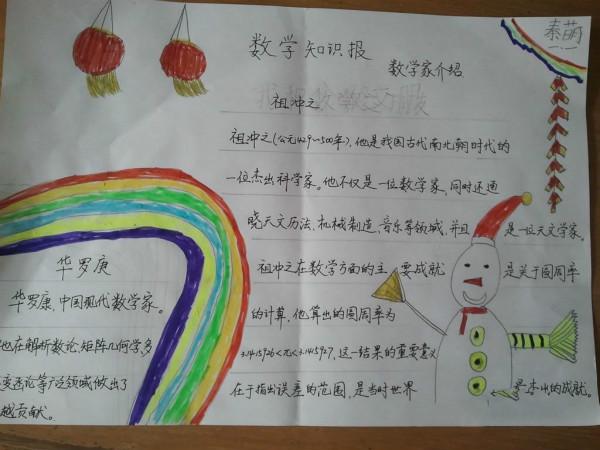 数学知识报
秦萌
一.一.
数学家介绍
祖冲之
祖冲之(公元429~500年),他是我国古代南北朝时代的
一位杰出科学家。他不仅是一位数学家,同时还通
晓天文历法、机械制造、音乐等领域,并且是一位天文学家。
祖冲之在数学方面的主要成就是关于圆周率
的计算,他算出的圆周率为
3.1415926<π<3.1415927,这一结果的重要意义
在于指出误差的范围,是当时世界是杰出的成就。
华罗庚
华罗庚,中国现代数学家。
他在解析数论,矩阵几何学,多
变函论等广泛领域做出了
越贡献。